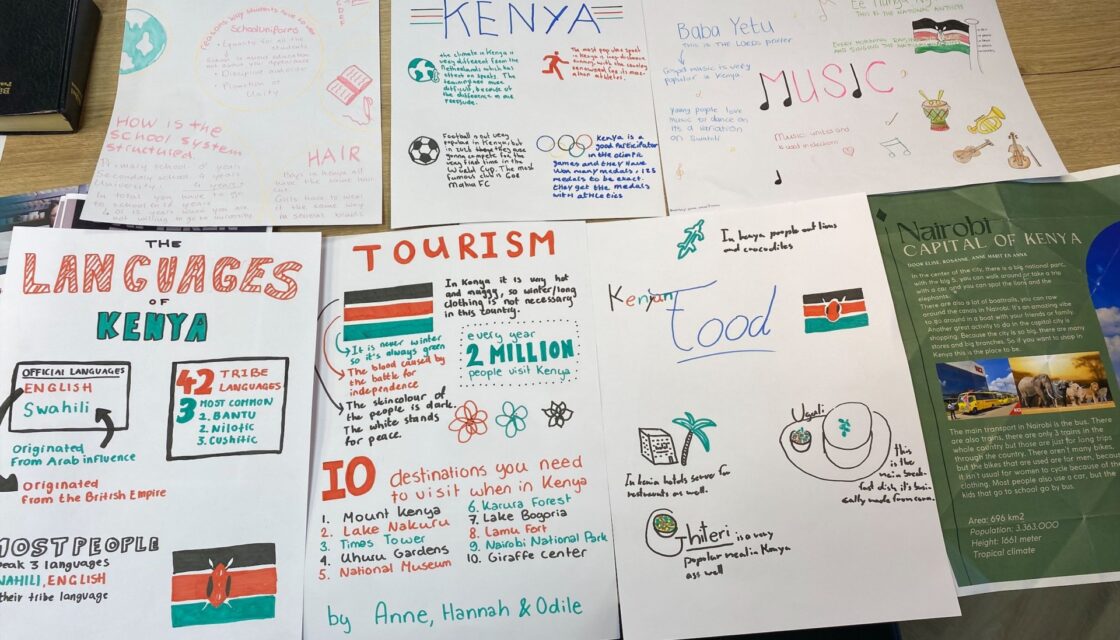 Reasons why students have to wear
Schooluniforms
• Equality for all the
students
• Discipline and order
• Promotion
Unity
HOW IS the
SCHOOL SYSTEM
STRUCTURED.
HAIR
KENYA
the climate in Kenya is
very different from the
Netherlands which has
effect on sports. The
training are more
difficult, because of
the difference in air
pressure.
The most popular sport
in Kenya is long-distance
running, with the country
renowned for its mara-
thon athletes.
Football is not very
popular in Kenya, but
in 2026 they are
gonna compete for the
very first time in the
World Cup. The most
famous club is Gor
Mahia FC
Kenya is a
good participator
in the olimpic
games and they have
won many medals, 125
medals to be exact.
they get the medals
with athletics
Baba Yetu
THIS IS THE LORDS prayer
Gospel music is very
popular in Kenya
THIS IS THE NATIONAL ANTHEM
MUSIC
Young people love
music to dance on
its a variation
on Swahili
Music: unites and
is used in elections
THE
LANGUAGES
OF
KENYA
OFFICIAL LANGUAGES
ENGLISH
Swahili
42 TRIBE
LANGUAGES
3 MOST COMMON
1. BANTU
2. Nilotic
3. Cushitic
Originated
From Arab influence
Originated
from the British Empire
MOST PEOPLE
speak 3 languages
SWAHILI, ENGLISH
their tribe language
TOURISM
In Kenya it is very hot
and muggy, so winter/long
clothing is not necessary
in this country.
It is never winter
so it's always green
The blood caused by
the battle for
independence
The skincolour of
the people is dark.
The white stands
for peace.
every year
2 MILLION
people visit Kenya
10 destinations you need
to visit when in Kenya
1. Mount Kenya
2. Lake Nakuru
3. Times Tower
4. Uhuru Gardens
5. National Museum
6. Karura Forest
7. Lake Bogoria
8. Lamu Fort
9. Nairobi National Park
10. Giraffe Center
by Anne, Hannah & Odile
In kenya people eat lions
and crocodiles
Kenyan
Food
Ugali
this is
the
main break-
fast dish, it's basi-
cally made from corn.
In kenia hotels serve for
restaurants as well.
Ghiteri is a very
popular meal in Kenya
ass well
Nairobi
CAPITAL OF KENYA
DOOR ELISE, ROSANNE, ANNE MARIT EN ANNA
In the center of the city, there is a big national parc.
with the big 5. you can walk around or take a trip
with a car und you can spot the lion and the
elephants.
There are also a lot of boattrails, you can row
around the canals in Nairobi. It's an amazing vibe
to go around in a boat with your friends or family.
Another great activity to do in the capital city is
shopping. Because the city is so big, there are many
stores and big branches. So if you want to shop in
Kenya this is the place to be.
The main transport in Nairobi is the bus. There
are also trains, there are only 3 trains in the
whole country but those are just for long trips
through the country. There aren't many bikes,
but the bikes that are used are for men, because
it isn't usual for women to cycle because of the
clothing. Most people also use a car, but the
kids that go to school go by bus.
Area: 696 km2
Population: 3.363.000
Height: 1661 meter
Tropical climate